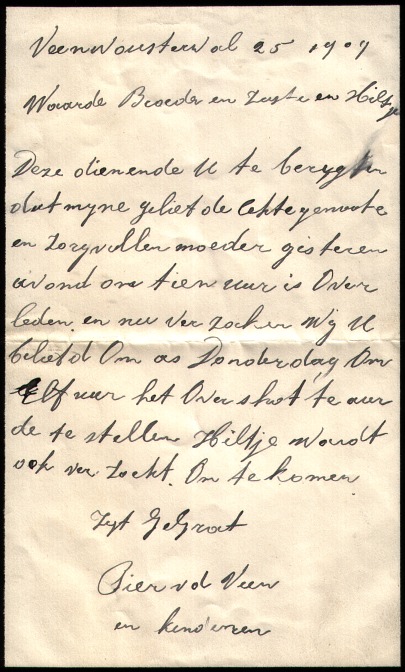 Veenwousterwal 25 1909
Waarde Broeder en Zuster en Hiltje
Deze dienende U te berygten
dat myne geliefde Echtegenoote
en Zorgvollen moeder gisteren
avond om tien uur is Over
leden en nu ver zoeken Wij U
beliefd Om as Donderdag Om
Elf uur het Overshot te aar
de te stellen Hiltje wordt
ook ver zockt. Om te komen
Zyt GeGroat
Pier vd Veen
en kinderen